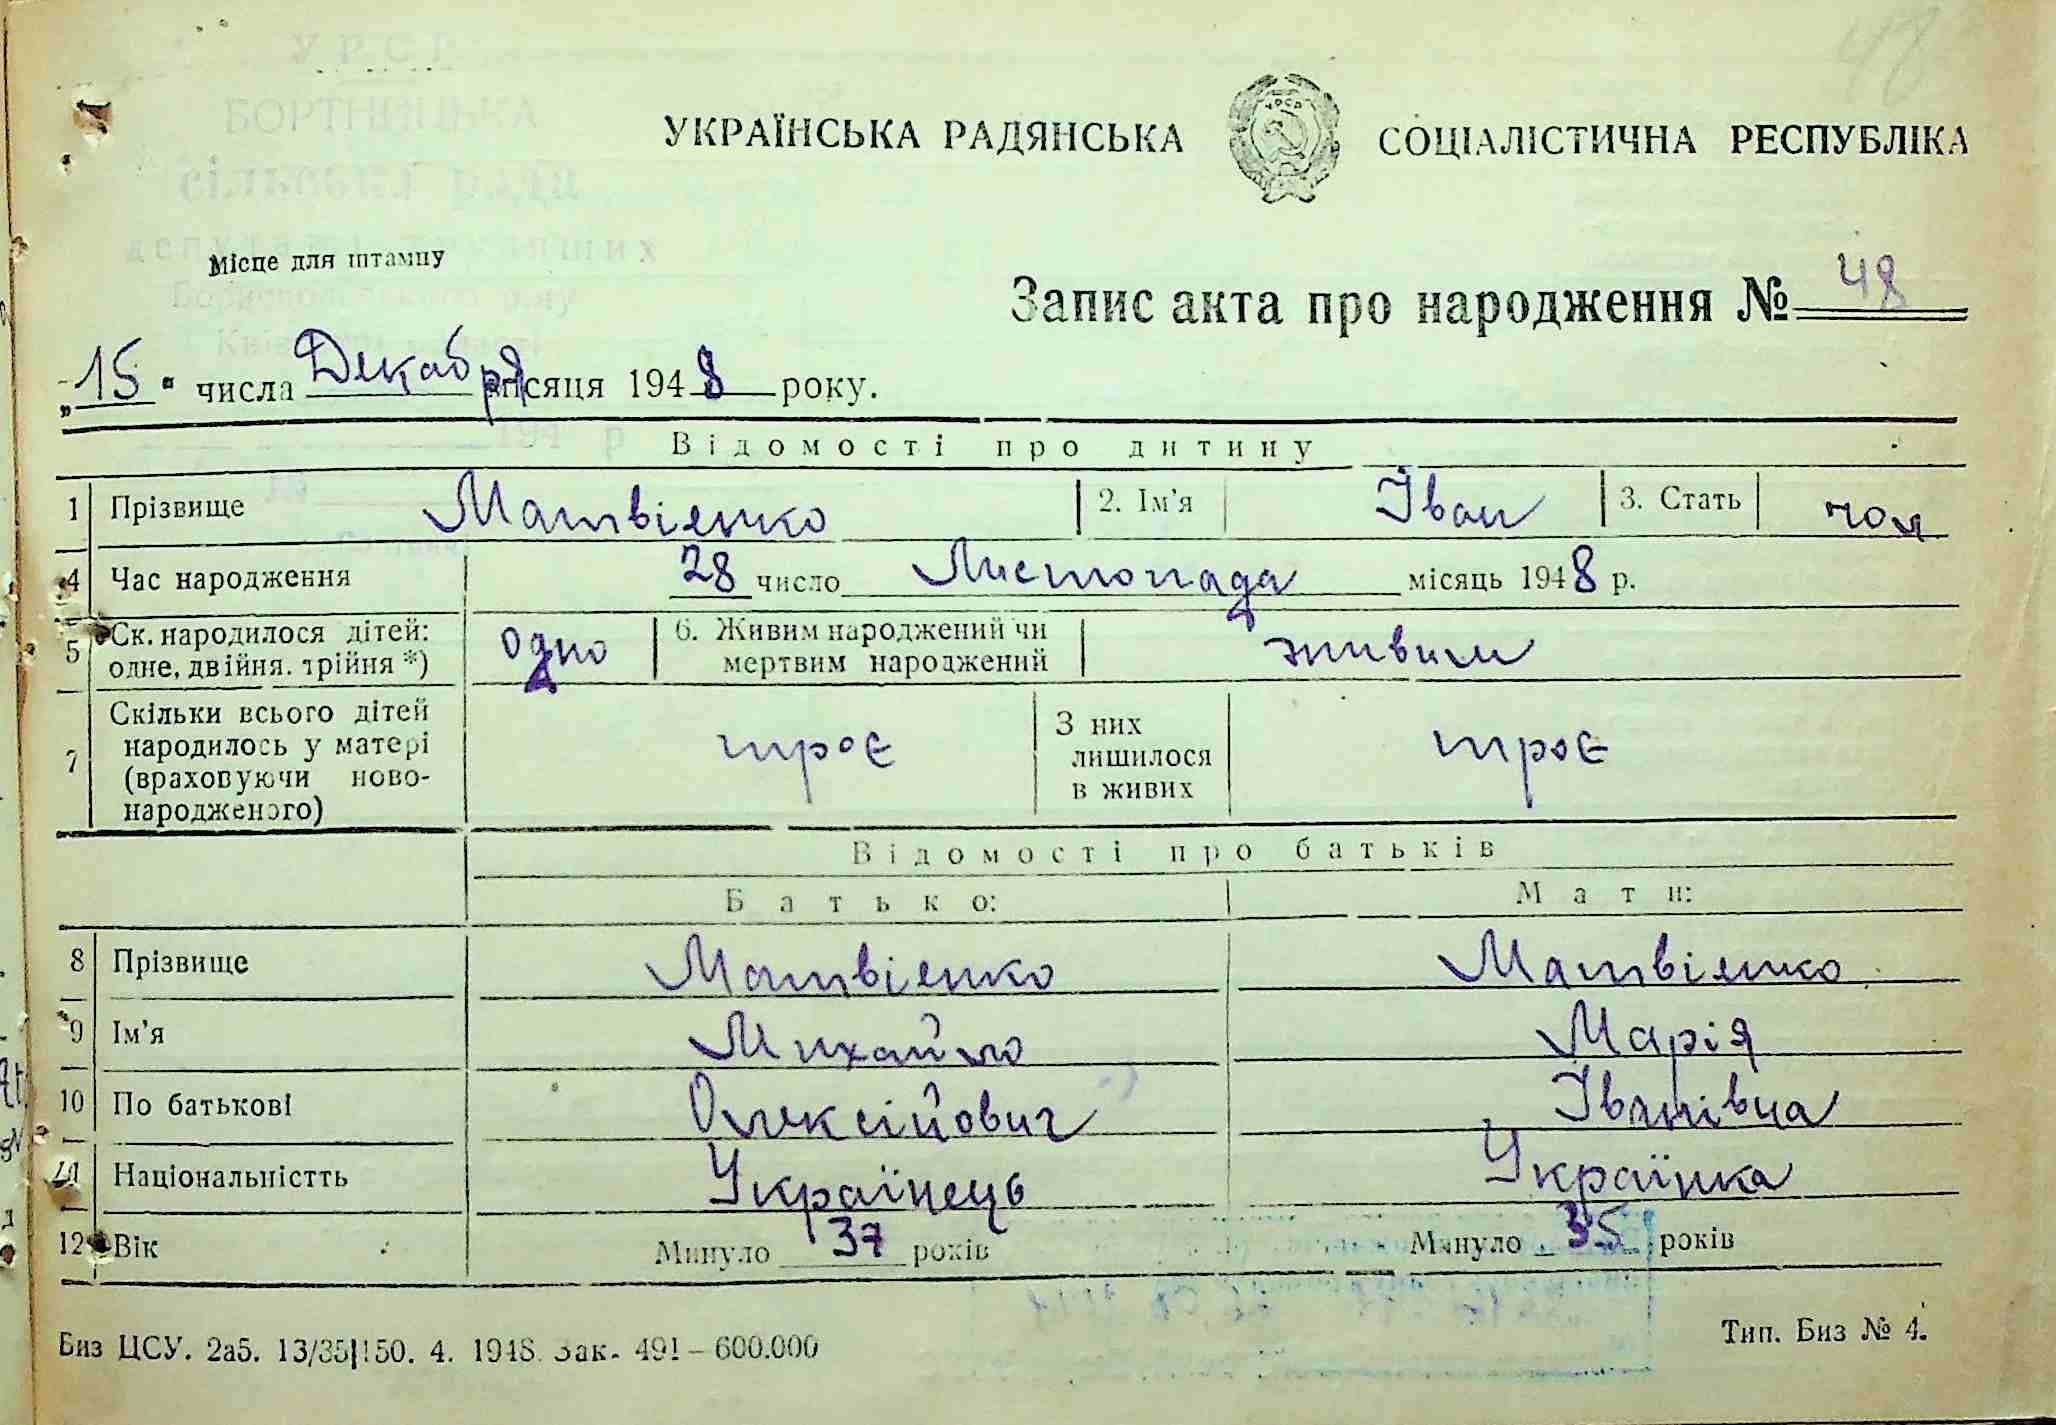 48
УКРАЇНСЬКА РАДЯНСЬКА СОЦІАЛІСТИЧНА РЕСПУБЛІКА
УРСР
БОРТНИЦЬКА
сільська рада
депутатів трудящих
Місце для штампу
Запис акта про народження № 48
„15" числа Декабря місяця 1948 року.
194 р
Відомості про дитину
1 Прізвище Матвієнко 2. Ім'я Іван 3. Стать чол
4 Час народження 28 число Листопада місяць 1948 р.
5 Ск. народилося дітей: одно 6. Живим народжений чи живим
одне, двійня. трійня *) мертвим народжений
7 Скільки всього дітей
народилось у матері
(враховуючи ново-
народженого) троє З них
лишилося
в живих троє
Відомості про батьків
Батько: Мати:
8 Прізвище Матвієнко Матвієнко
9 Ім'я Михайло Марія
10 По батькові Олексійович Іванівна
11 Національністть Українець Українка
12 Вік Минуло 37 років Минуло 35 років
Биз ЦСУ. 2а5. 13/35|150. 4. 1948. Зак. 491 – 600.000 Тип. Биз № 4.